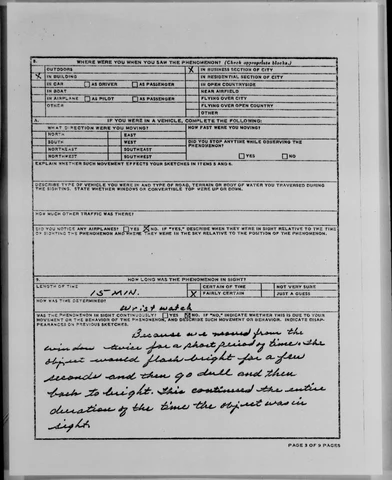 8. WHERE WERE YOU WHEN YOU SAW THE PHENOMENON? (Check appropriate blocks.)
OUTDOORS X IN BUSINESS SECTION OF CITY
X IN BUILDING IN RESIDENTIAL SECTION OF CITY
IN CAR AS DRIVER AS PASSENGER IN OPEN COUNTRYSIDE
IN BOAT NEAR AIRFIELD
IN AIRPLANE AS PILOT AS PASSENGER FLYING OVER CITY
OTHER FLYING OVER OPEN COUNTRY
OTHER
A. IF YOU WERE IN A VEHICLE, COMPLETE THE FOLLOWING:
WHAT DIRECTION WERE YOU MOVING? HOW FAST WERE YOU MOVING?
NORTH EAST
SOUTH WEST DID YOU STOP ANYTIME WHILE OBSERVING THE
NORTHEAST SOUTHEAST PHENOMENON?
NORTHWEST SOUTHWEST YES NO
EXPLAIN WHETHER SUCH MOVEMENT EFFECTS YOUR SKETCHES IN ITEMS 5 AND 6.
DESCRIBE TYPE OF VEHICLE YOU WERE IN AND TYPE OF ROAD, TERRAIN OR BODY OF WATER YOU TRAVERSED DURING
THE SIGHTING. STATE WHETHER WINDOWS OR CONVERTIBLE TOP WERE UP OR DOWN.
HOW MUCH OTHER TRAFFIC WAS THERE?
DID YOU NOTICE ANY AIRPLANES? YES X NO. IF "YES," DESCRIBE WHEN THEY WERE IN SIGHT RELATIVE TO THE TIME
OF SIGHTING THE PHENOMENON AND WHERE THEY WERE IN THE SKY RELATIVE TO THE POSITION OF THE PHENOMENON.
9. HOW LONG WAS THE PHENOMENON IN SIGHT?
LENGTH OF TIME CERTAIN OF TIME NOT VERY SURE
15 MIN. X FAIRLY CERTAIN JUST A GUESS
HOW WAS TIME DETERMINED?
wrist watch
WAS THE PHENOMENON IN SIGHT CONTINUOUSLY? YES X NO. IF "NO," INDICATE WHETHER THIS IS DUE TO YOUR
MOVEMENT OR THE BEHAVIOR OF THE PHENOMENON, AND DESCRIBE SUCH MOVEMENT OR BEHAVIOR. INDICATE DISAP-
PEARANCES ON PREVIOUS SKETCHES.
Because we moved from the
window twice for a short period of time. The
object would flash bright for a few
seconds and then go dull and then
back to bright. This continued the entire
duration of the time the object was in
sight.
PAGE 3 OF 9 PAGES